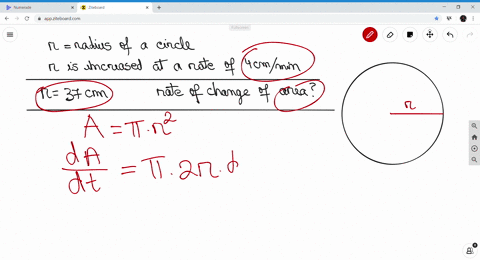 Numerade
Ziteboard
app.ziteboard.com
r = radius of a circle
r is increased at a rate of 4cm/min
r = 37 cm rate of change of area?
A = π · r²
dA/dt = π · 2r · d
r